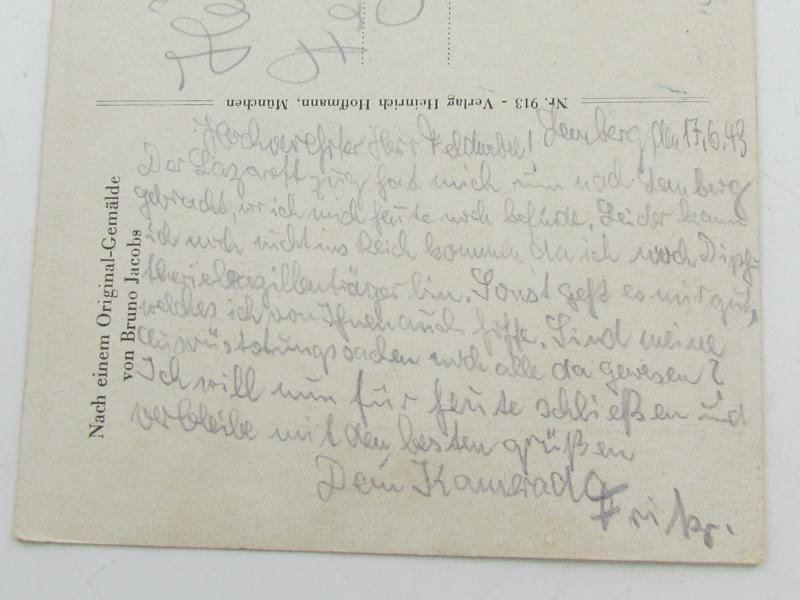 Nr. 913 - Verlag Heinrich Hoffmann, München
Nach einem Original-Gemälde
von Bruno Jacobs
Lemberg den 17.6.43
Hochverehrter Herr Feldwebel!
Der Lazarettzug hat mich nun nach Lemberg
gebracht, wo ich mich heute noch befinde. Leider kann
ich noch nicht ins Reich kommen da ich noch Diph-
theriebazillenträger bin. Sonst geht es mir gut,
welches ich von Ihnen auch hoffe. Sind meine
Ausrüstungssachen noch alle da gewesen?
Ich will nun für heute schließen und
verbleibe mit den besten grüßen
Dein Kamerad